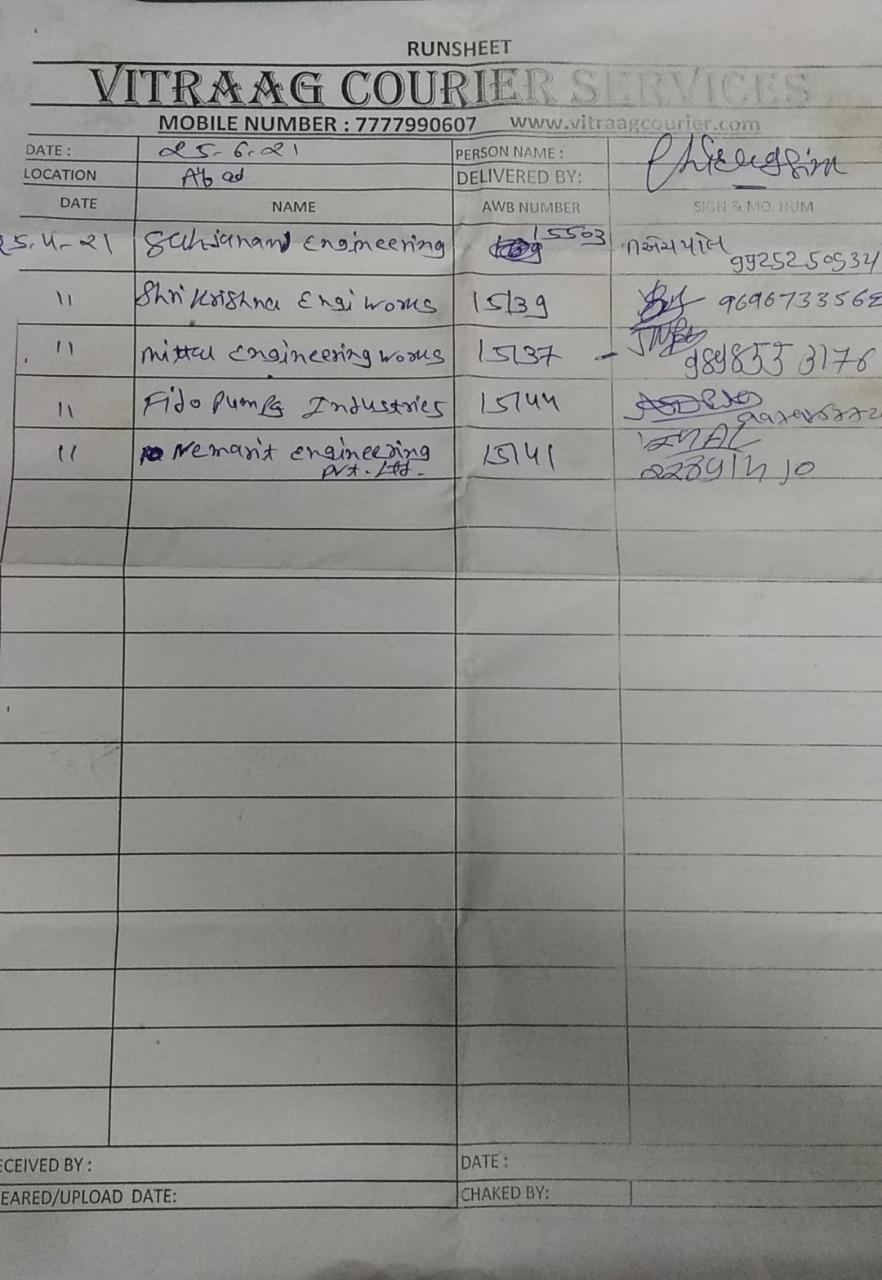 RUNSHEET
VITRAAG COURIER SERVICES
MOBILE NUMBER : 7777990607 www.vitraagcourier.com
DATE : 25-6-21 PERSON NAME :
LOCATION A'bad DELIVERED BY:
DATE NAME AWB NUMBER SIGN & MO. NUM
25-4-21 Sahjanand Engineering 15503
9925250534
11 Shri Krishna Engi Works 15139 969673356
11 Mittal Engineering works 15137
989855 3176
11 Fido Pumps Industries 15144
11 Nemarit engineering 15141
pvt. Ltd.
CEIVED BY : DATE :
EARED/UPLOAD DATE: CHAKED BY: